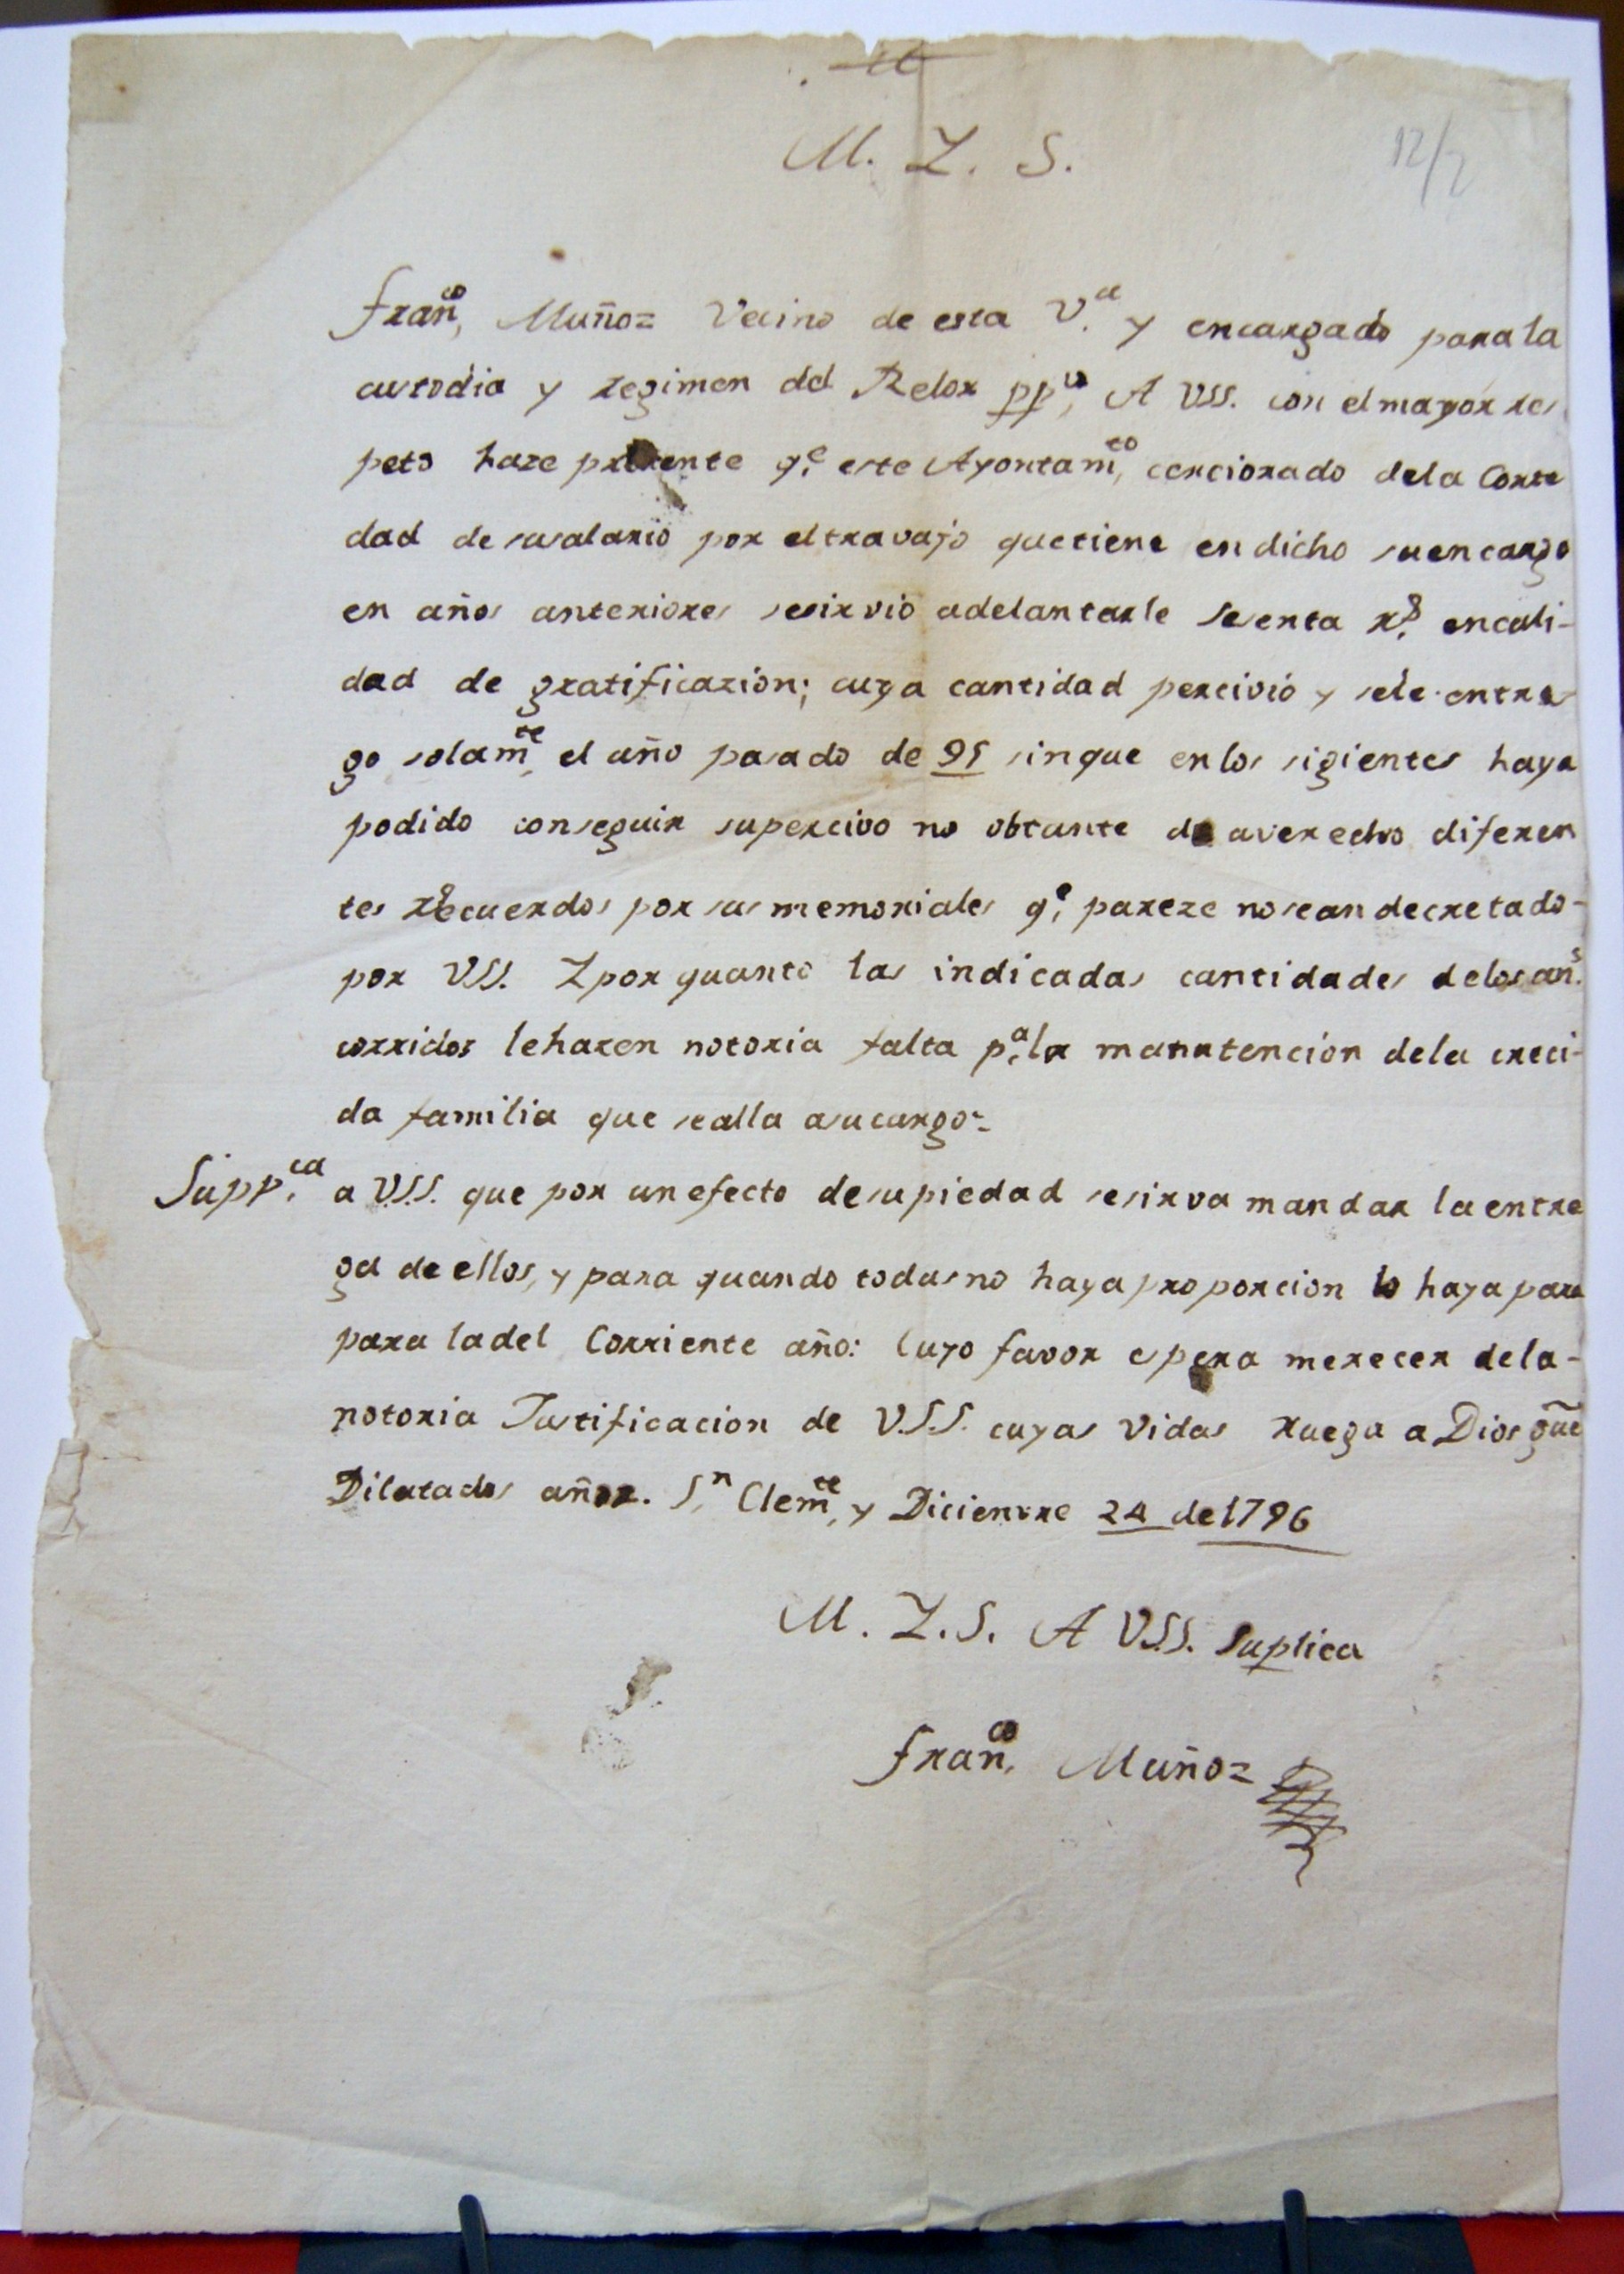 M. Y. S.
12/2
Fran.co Muñoz Vecino de esta V.a y encargado para la
custodia y regimen del Relox pp.co A VSS. con el mayor res
peto haze presente q.e este Ayontam.to cerciorado dela Corte
dad de su salario por el travajo que tiene en dicho su encargo
en años anteriores se sirvio adelantarle sesenta r.s en cali-
dad de gratificazion; cuya cantidad percivió y se le entre
go solam.te el año pasado de 91 sin que en los sigientes haya
podido conseguir su percivo no obtante de aver echo diferen
tes recuerdos por sus memoriales q.e pareze no sean decretado-
por VSS. Y por quanto las indicadas cantidades de los an.s
corridos le hazen notoria falta p.a la manutencion de la creci-
da familia que se alla a su cargo-
Supp.ca a V.S.S. que por un efecto de su piedad se sirva mandar la entre
ga de ellos, y para quando todas no haya proporcion lo haya para
para la del Corriente año: Cuyo favor espera merecer de la-
notoria Justificacion de V.S.S. cuyas Vidas ruega a Dios gue
Dilatados años. S.n Clem.te y Dicienvre 24 de 1796
M. Y. S. A VSS. Suplica
Fran.co Muñoz